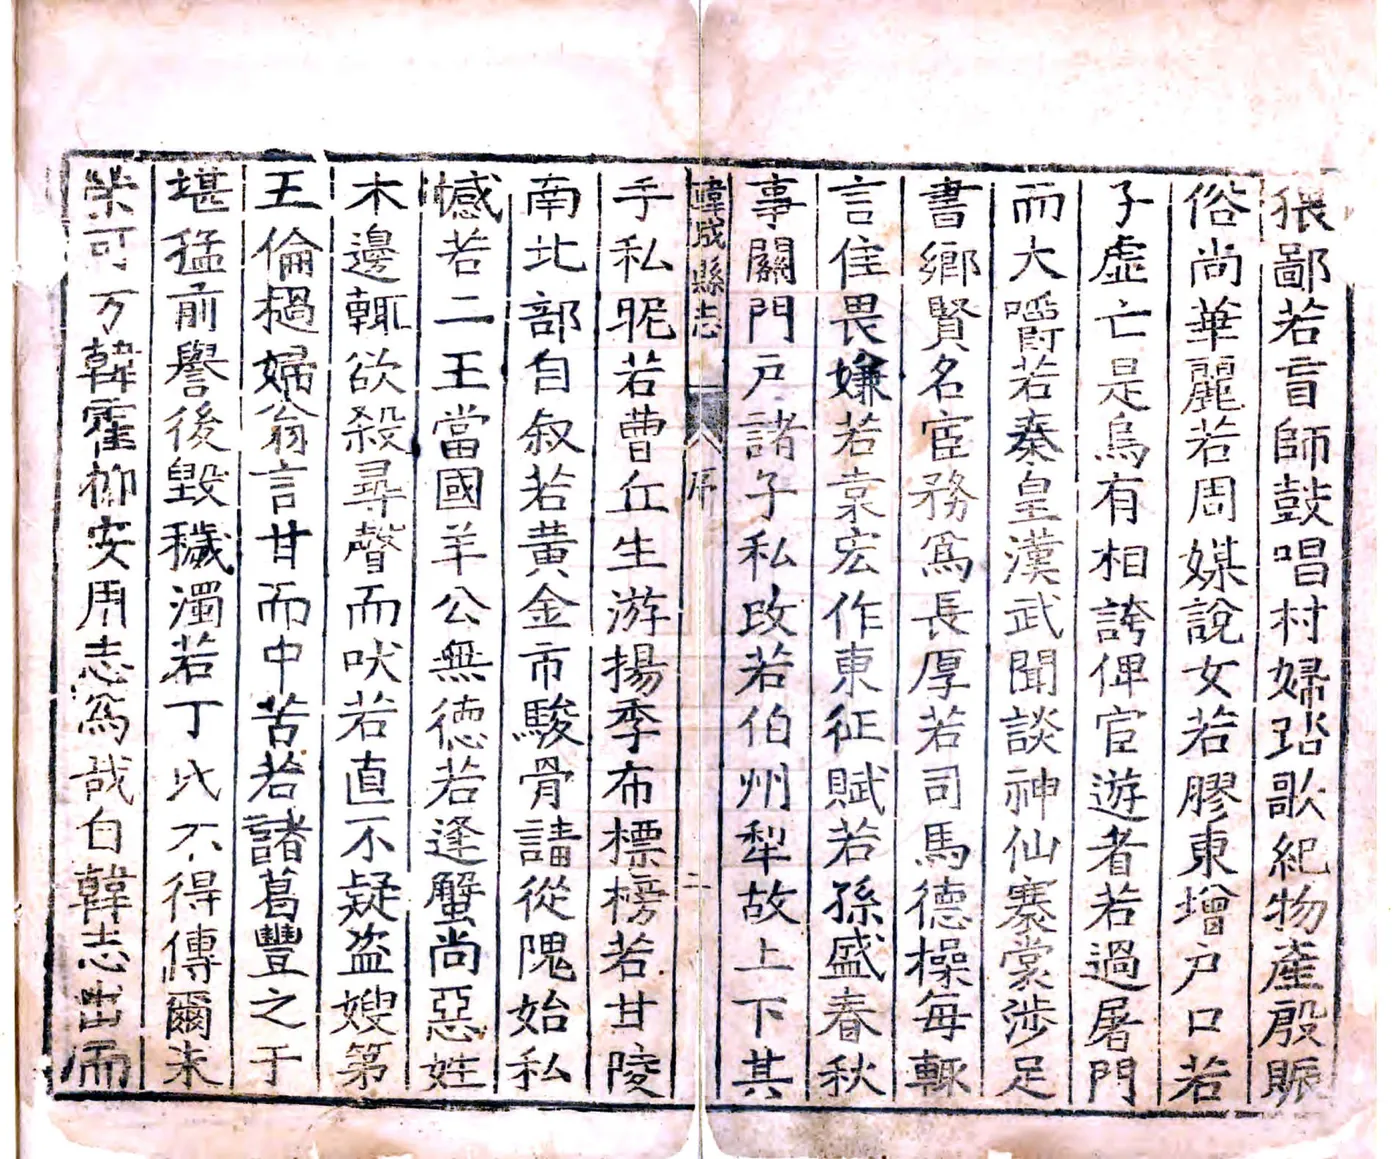 猥鄙若盲師鼓唱村婦踏歌紀物產殷賑
俗尚華麗若周媒說女若膠東增戶口若
子虛亡是烏有相誇俾宦遊者若過屠門
而大嚼若秦皇漢武聞談神仙褰裳涉足
書鄉賢名宦務爲長厚若司馬德操每輒
言佳畏嫌若袁宏作東征賦若孫盛春秋
事關門戶諸子私改若伯州犁故上下其
韓城縣志 序 二
手私昵若曹丘生游揚季布標榜若甘陵
南北部自叙若黃金市駿骨請從隗始私
憾若二王當國羊公無德若逢蟹尚惡姓
木邊輒欲殺尋聲而吠若直不疑盜嫂第
五倫撾婦翁言甘而中苦若諸葛豐之于
堪猛前譽後毀穢濁若丁氏不得傳爾朱
榮可方韓霍抑安用志爲哉白韓志出而